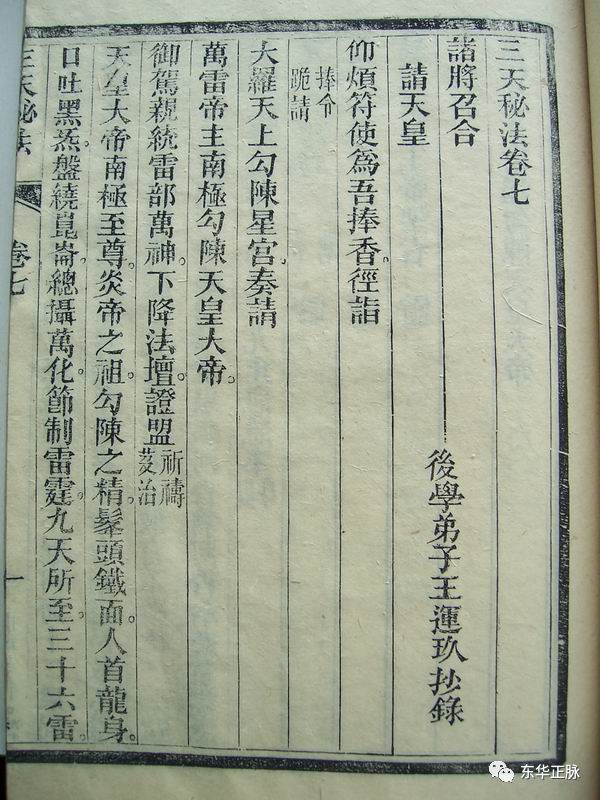 三天秘法卷七
諸將召合
後學弟子王運玖抄錄
請天皇
仰煩符使為吾捧香徑詣
捧令
跪請
大羅天上勾陳星宮奏請
萬雷帝主南極勾陳天皇大帝。
御駕親統雷部萬神。下降法壇證盟
祈禱
芟治
天皇大帝南極至尊。炎帝之祖。勾陳之精。鬔頭鐵面。人首龍身。
口吐黑炁。盤繞崑崙。總攝萬化。節制雷霆。九天所至。三十六雷。
三天秘法
卷七
一
东华正脉